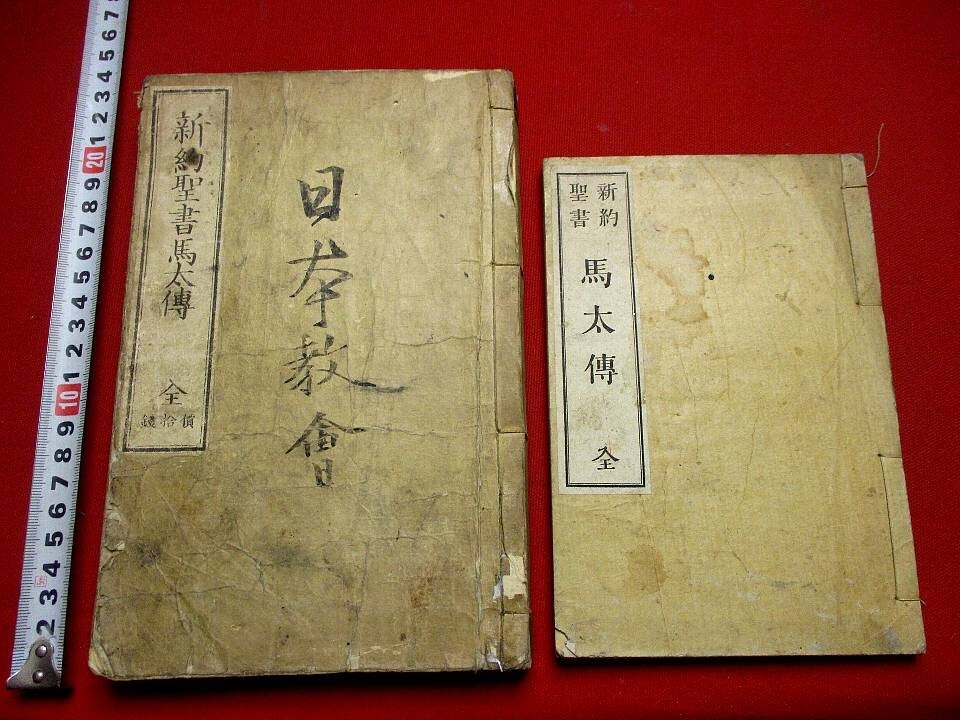 新約聖書馬太傳
全
價拾錢
日本教會
新約
聖書
馬太傳
全
1 2 3 4 5 6 7 8 9 10 1 2 3 4 5 6 7 8 9 20 1 2 3 4 5 6 7